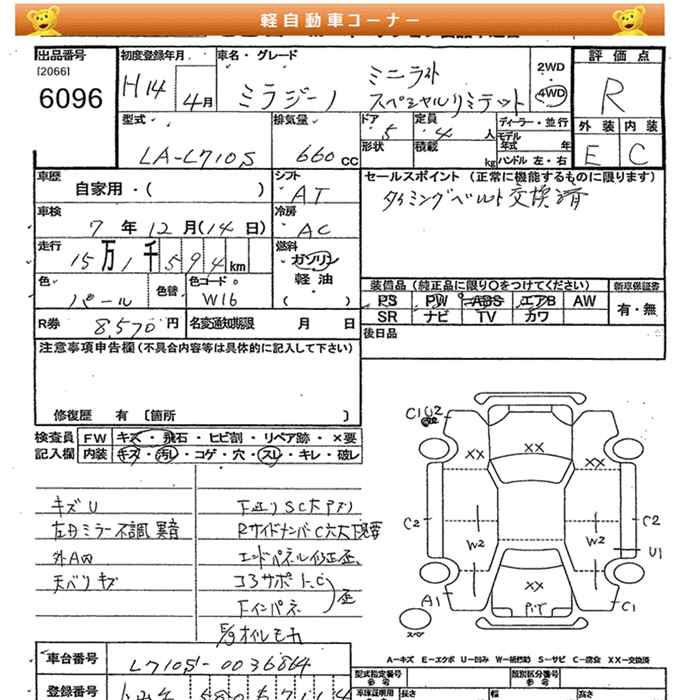 軽自動車コーナー
出品番号
[2066]
6096
初度登録年月
H14 4月
車名・グレード
ミラジーノ
ミニライト
スペシャルリミテット
2WD
4WD
評価点
R
外装 内装
E C
型式
LA-L710S
排気量
660 CC
ドア 5
形状
定員 4 人
積載 kg
ディーラー・並行
モデル年式 年
ハンドル 左・右
車歴
自家用・( )
シフト
AT
セールスポイント (正常に機能するものに限ります)
タイミングベルト交換済
車検
7年12月(14日)
冷房
AC
走行
15万1千594km
燃料
ガソリン
軽油
( )
色
パール
色替
色コード
W16
装備品 (純正品に限り○をつけてください)
新車保証書
PS PW ABS エアB AW
SR ナビ TV カワ
有・無
R券 8,570円
名変通知期限 月 日
後日品
注意事項申告欄 (不具合内容等は具体的に記入して下さい)
修復歴 有 〔箇所 〕
検査員記入欄
FW キズ・飛石・ヒビ割・リペア跡・×要
内装 キズ・汚れ・コゲ・穴・スレ・キレ・破レ
キズU
左Dミラー不調 異音
外A凹
天ベリキズ
下廻りSC大アリ
エンドパネル修正歪
歪
C1 U2
XX
XX
XX
C2
C2
W2
W2
U1
XX
A1
C1
A-キズ E-エクボ U-凹み W-板修跡 S-サビ C-腐食 XX-交換済
車台番号
L710S-0036864
登録番号
型式指定番号
類別区分番号
参考
参考
長さ
幅
高さ